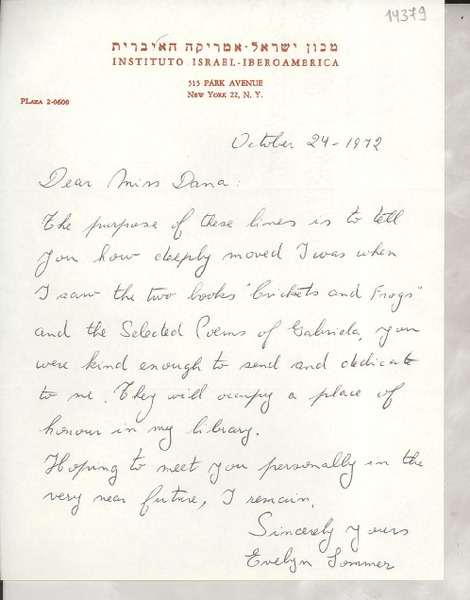 14379
מכון ישראל-אמריקה האיברית
INSTITUTO ISRAEL-IBEROAMERICA
515 PARK AVENUE
NEW YORK 22, N. Y.
PLAZA 2-0600
October 24-1972
Dear Miss Dana:
The purpose of these lines is to tell
you how deeply moved I was when
I saw the two books "Crickets and Frogs"
and the Selected Poems of Gabriela, you
were kind enough to send and dedicate
to me. They will occupy a place of
honour in my library.
Hoping to meet you personally in the
very near future, I remain,
Sincerely yours
Evelyn Sommer